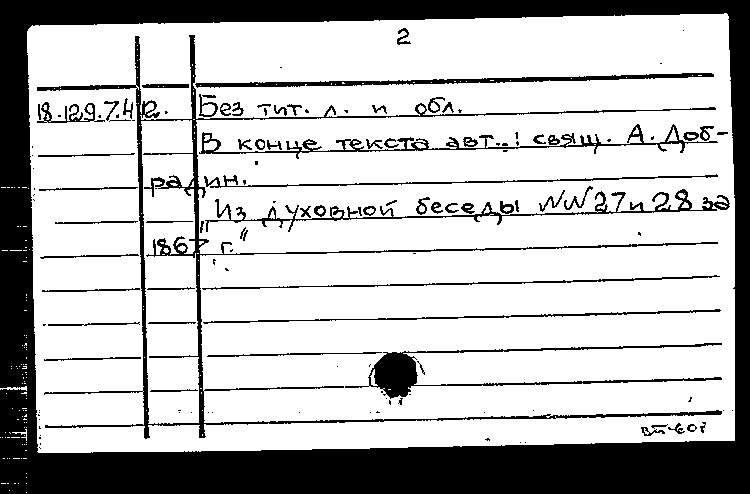 2
18.129.7.412. Без тит. л. и обл.
В конце текста авт.: свящ. А. Доб-
радин.
„Из духовной беседы NN 27 и 28 за
1867 г."